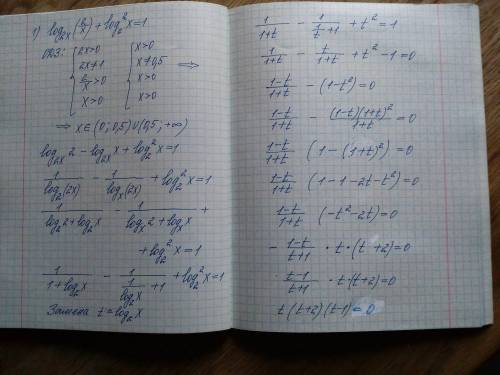 1) log₂ₓ(2/x) + log₂²x = 1
ОДЗ: { 2x>0 { x>0
2x≠1 x≠0,5 ⟹
2/x>0 x>0
x>0 x>0
⟹ x∈(0; 0,5)∪(0,5; +∞)
log₂ₓ2 − log₂ₓx + log₂²x = 1
1/log₂(2x) − 1/logₓ(2x) + log₂²x = 1
1/(log₂2 + log₂x) − 1/(logₓ2 + logₓx) +
+ log₂²x = 1
1/(1 + log₂x) − 1/(1/log₂x + 1) + log₂²x = 1
Замена t = log₂x
1/(1+t) − 1/(1/t + 1) + t² = 1
1/(1+t) − t/(1+t) + t² − 1 = 0
(1−t)/(1+t) − (1−t²) = 0
(1−t)/(1+t) − (1−t)(1+t)²/(1+t) = 0
(1−t)/(1+t) (1 − (1+t)²) = 0
(1−t)/(1+t) (1 − 1 − 2t − t²) = 0
(1−t)/(1+t) (−t² − 2t) = 0
− (1−t)/(t+1) · t · (t+2) = 0
(t−1)/(t+1) · t · (t+2) = 0
t(t+2)(t−1) = 0